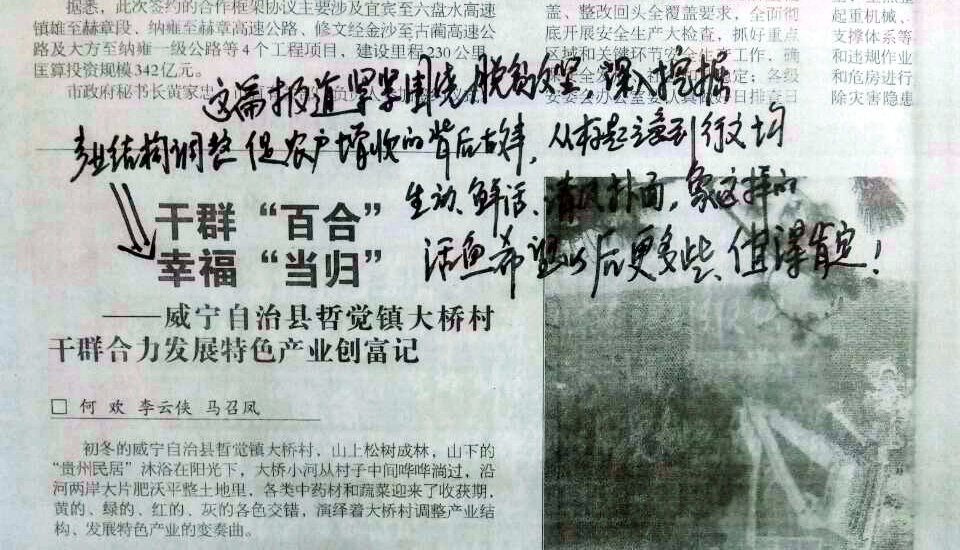 据悉,此次签约的合作框架协议主要涉及宜宾至六盘水高速
镇雄至赫章段、纳雍至赫章高速公路、修文经金沙至古蔺高速公
路及大方至纳雍一级公路等4个工程项目,建设里程230公里,
匡算投资规模342亿元。
市政府秘书长黄家忠
盖、整改回头全覆盖要求,全面彻
底开展安全生产大检查,抓好重点
区域和关键环节安全生产工作,确
安委会办公室要认真做好日排查日
起重机械、
支撑体系等
和违规作业
和危房进行
除灾害隐患
这篇报道紧紧围绕脱贫攻坚,深入挖掘
产业结构调整促农户增收的背后故事,从标题立意到行文均
生动、鲜活、清风扑面,象这样的
活鱼希望以后更多些、值得肯定!
干群“百合”
幸福“当归”
——威宁自治县哲觉镇大桥村
干群合力发展特色产业创富记
□ 何 欢 李云侠 马召凤
初冬的威宁自治县哲觉镇大桥村,山上松树成林,山下的
“贵州民居”沐浴在阳光下,大桥小河从村子中间哗哗淌过,沿
河两岸大片肥沃平整土地里,各类中药材和蔬菜迎来了收获期,
黄的、绿的、红的、灰的各色交错,演绎着大桥村调整产业结
构、发展特色产业的变奏曲。